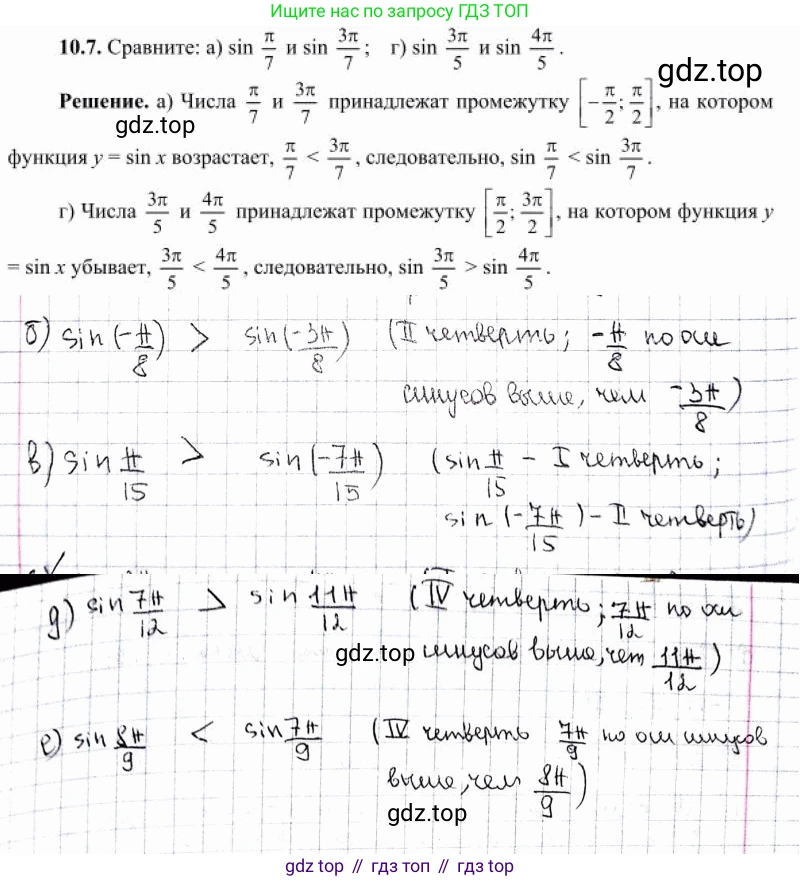 Ищите ответы по запросу ГДЗ ТОП
10.7. Сравните: а) sin π/7 и sin 3π/7; г) sin 3π/5 и sin 4π/5.
gdz.top
Решение. а) Числа π/7 и 3π/7 принадлежат промежутку [-π/2; π/2], на котором
gdz.top
функция y = sin x возрастает, π/7 < 3π/7, следовательно, sin π/7 < sin 3π/7.
г) Числа 3π/5 и 4π/5 принадлежат промежутку [π/2; 3π/2], на котором функция y
= sin x убывает, 3π/5 < 4π/5, следовательно, sin 3π/5 > sin 4π/5.
б) sin(-π/8) > sin(-3π/8) (II четверть; -π/8 по оси
синусов выше, чем -3π/8)
в) sin π/15 > sin(-7π/15) (sin π/15 - I четверть;
sin(-7π/15) - II четверть)
д) sin 7π/12 > sin 11π/12 (IV четверть; 7π/12 по оси
gdz.top
синусов выше, чем 11π/12)
е) sin 8π/9 < sin 7π/9 (IV четверть 7π/9 по оси синусов
выше, чем 8π/9)
gdz.top
gdz top // гдз топ // gdz top